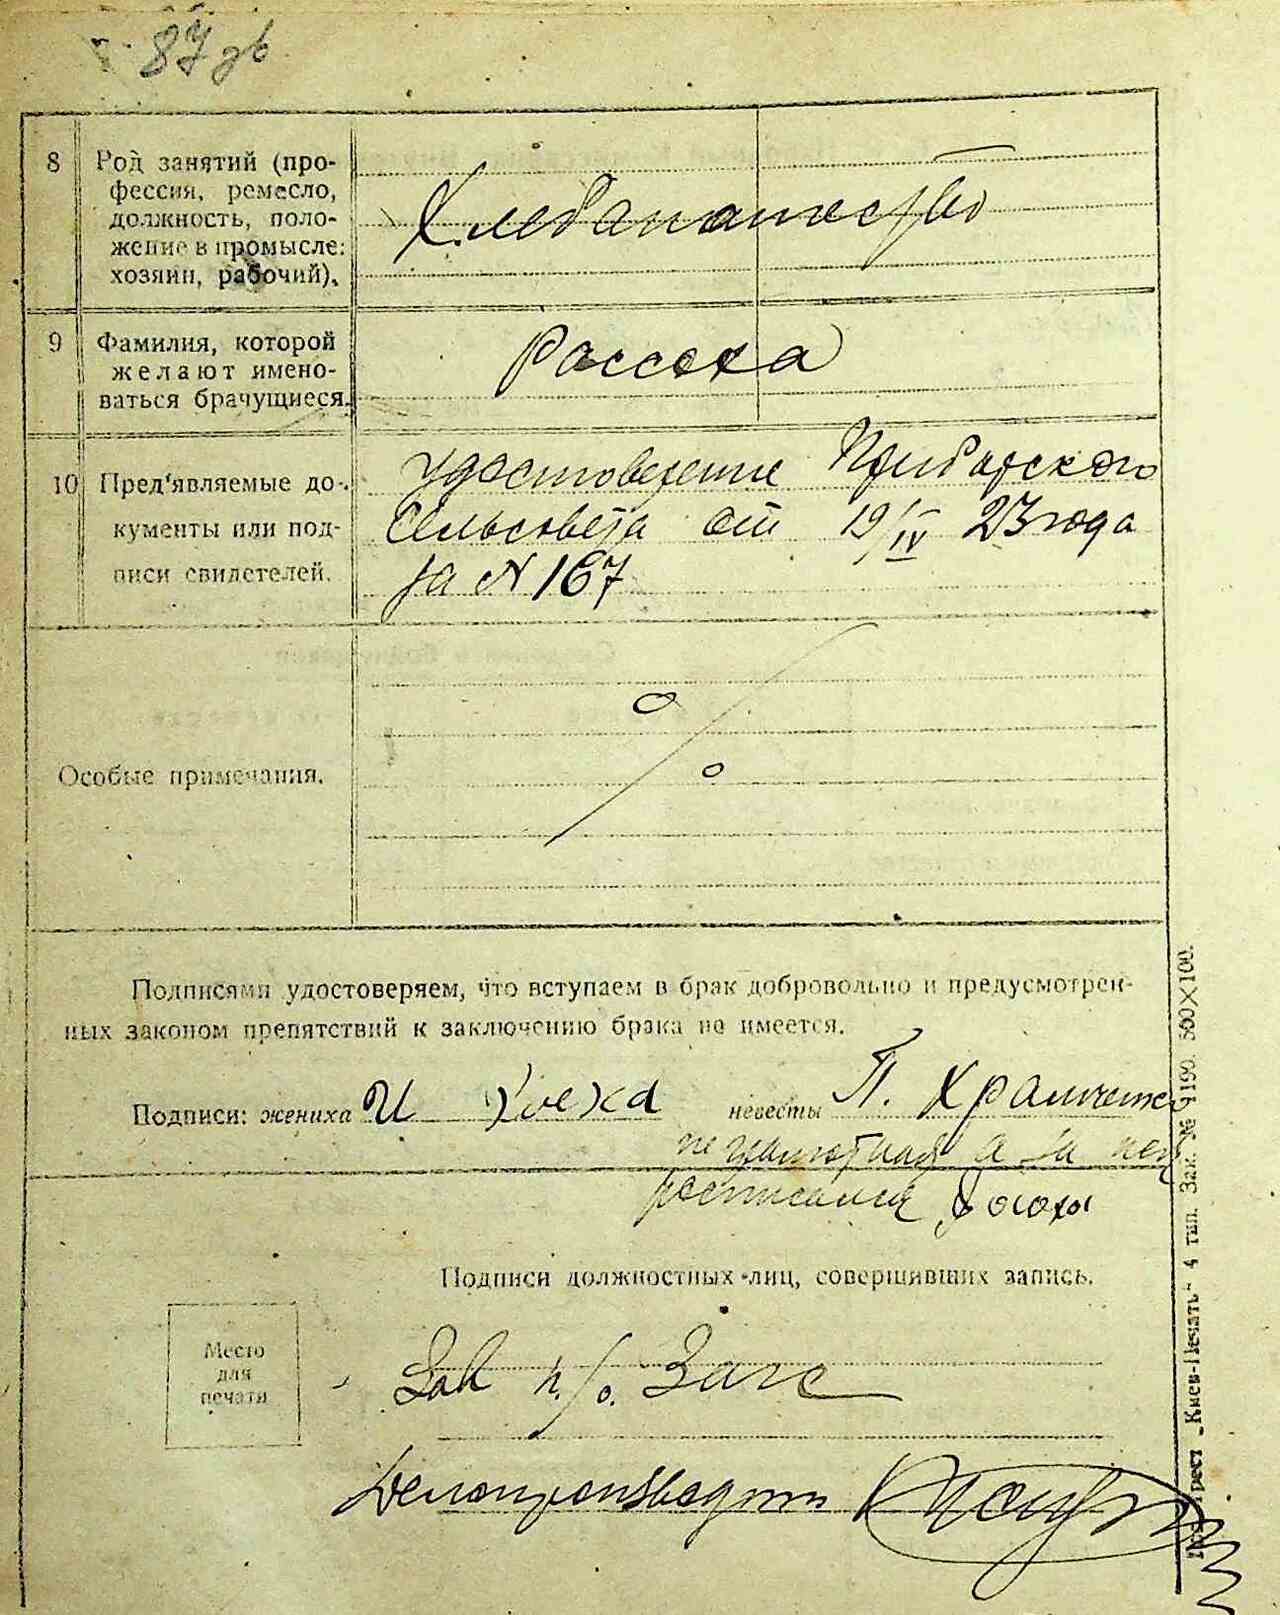 87 зв
8 Род занятий (про-
фессия, ремесло,
должность, поло-
жение в промысле:
хозяин, рабочий).
Хлебапашество
9 Фамилия, которой
желают имено-
ваться брачущиеся.
Рассоха
10 Пред'являемые до-
кументы или под-
писи свидетелей.
удостоверение Прибарского
Сельсовета от 19/IV 23 года
за N 167
Особые примечания.
Подписями удостоверяем, что вступаем в брак добровольно и предусмотрен-
ных законом препятствий к заключению брака не имеется.
Подписи: жениха И невесты П. Храпченко
неграмотная а за нея
росписался
Подписи должностных лиц, совершивших запись.
Место
для
печати
Зав п/о. Загс
Делопроизводит
трест „Киев-Печать" 4 тип. Зак. № 4190. 500×100.